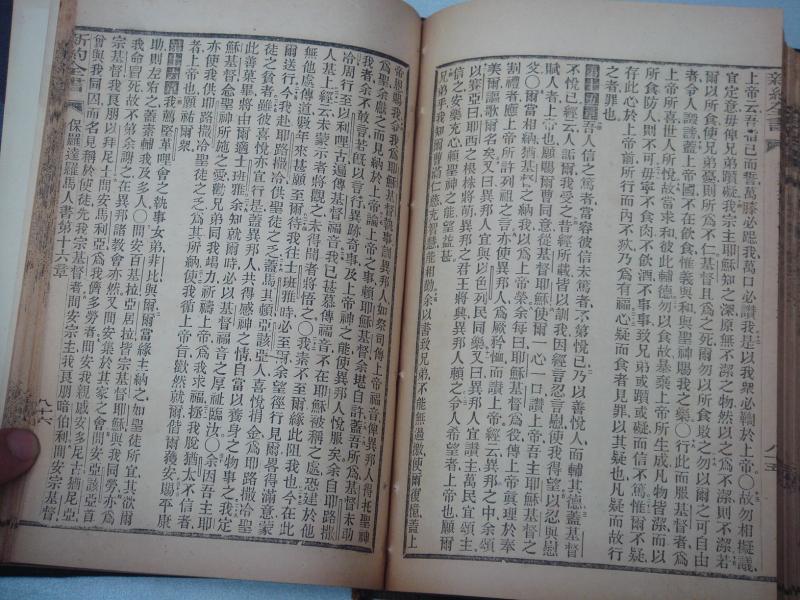 新約全書
八十五
上帝云吾指己而誓萬膝必跽我萬口必讚我是以我衆必鞫於上帝〇故勿相擬議
宜定意毋俾兄弟躓礙我宗主耶穌知之深原無不潔之物然以之爲不潔則不潔若
爾以所食使兄弟憂則所爲不仁基督且爲之死爾勿以所食敗之勿以爾之可自由
者令人譭謗蓋上帝國不在飲食惟義與和與聖神賜我之樂〇行此而服基督者爲
上帝所喜世人所悅故當求和彼此輔德勿以食故棄上帝所生成凡物皆潔而以
所食妨人則不可毋寧不食肉不飲酒不事事致兄弟或躓或礙而信不篤惟爾不疑
存此心於上帝前所行而內不疚乃爲有福心疑而食者見罪以其疑也凡疑而故行
第十五章 吾人信之篤者當容彼信未篤者不第悅己乃以善悅人而輔其德蓋基督
不悅己經云人詬爾我受之昔經所載皆以訓我因經言忍言慰使我得望以忍與慰
賦人者上帝也願賜爾曹同意從基督耶穌使爾一心一口讚上帝吾主耶穌基督之
父〇爾當相納如基督之納我以爲上帝榮余每曰耶穌基督爲役傳上帝眞理於奉
割禮者應上帝所許列祖之言亦使異邦人爲厥矜恤而讚上帝經云異邦之中余頌
美爾謳歌爾名矣又曰異邦人宜與以色列民同樂又曰異邦人宜讚主萬民宜頌主
以賽亞曰耶西之根株將萌異邦之君王將興異邦人賴之令人希望者上帝也願爾
信之安樂充心賴聖神之能望益甚
兄弟乎我知爾曹仁慈充智慧能相勸余以書致兄弟不能無過激使爾復憶蓋上
帝恩賜我令我爲耶穌基督執事訓異邦人如祭司傳上帝福音俾異邦人得托聖神
爲聖余獻之而見納於上帝論上帝之事賴耶穌基督余堪自許蓋吾所言爲基督未助
我者余不敢言若旣以言行異跡奇事及上帝神之能使異邦人悅服矣余自耶路撒
冷周行至以利哩古遍傳基督福音我已甚慕傳福音不在耶穌被稱之處恐建於他
人基上經云未蒙示者將觀之未得聞者將悟之〇我素不至爾緣此阻我也今在此
無他處傳道數年來甚願至爾待我往士班雅時必至爾余望徑行見爾畧得滿意蒙
爾送行今我赴耶路撒冷供聖徒之乏蓋馬其頓亞該亞人喜悅捐金爲耶路撒冷聖
徒之貧者雖彼喜悅亦宜行是蓋異邦人共得感神之情自當以養身之物事之我定
此善菓畢將由爾適士班雅余知就爾時必以基督福音之厚祉臨汝〇余因吾主耶
穌基督及聖神所施之愛勸兄弟同我竭力祈禱上帝爲我求福拯我脫猶太不信者
亦使我供耶路撒冷聖徒之乏爲其所納使我循上帝旨歡然就爾偕爾獲安賜平康
之上帝也願祐爾衆
第十六章 我薦堅革哩會之執事女弟非比與爾爾當緣主納之如聖徒所宜其欲爾
助則左右之蓋素輔我及多人〇問安百基拉亞居拉皆宗基督耶穌與我同勞亦爲
我命冒死故不第余謝之在異邦諸教會亦然又問安集於其家之會問安亞該亞首
宗基督我良朋以拜尼土問安馬利亞爲我儕多勞者問安我親戚安多尼古猶尼亞
曾與我同囚而名見稱於使徒先我宗基督者問安宗主我良朋暗伯利問安宗基督
新約全書
保羅達羅馬人書第十六章
八十六